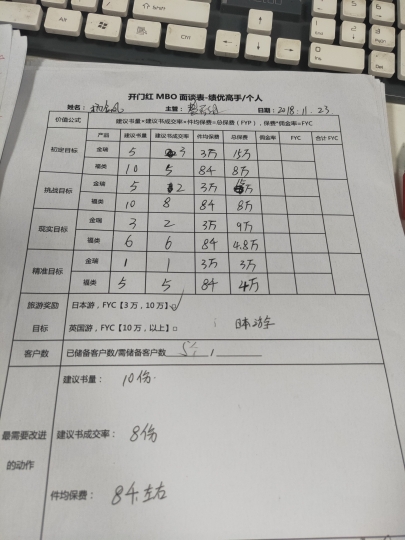 开门红 MBO 面谈表-绩优高手/个人
姓名： 主管： 日期：2018.11.23
价值公式 建议书量*建议书成交率*件均保费=总保费（FYP），保费*佣金率=FYC
产品 建议书量 建议书成交率 件均保费 总保费 佣金率 FYC 合计 FYC
初定目标 金瑞 5 3 3万 15万
福类 10 5 8千 8万
挑战目标 金瑞 5 2 3万 15万
福类 10 8 8千 8万
现实目标 金瑞 3 2 3万 9万
福类 6 6 8千 4.8万
精准目标 金瑞 1 1 3万 3万
福类 5 5 8千 4万
旅游奖励 日本游，FYC【3 万，10 万】☑
目标 英国游，FYC【10 万，以上】□ 日本游
客户数 已储备客户数/需储备客户数 / 
建议书量： 10份
最需要改进 建议书成交率： 8份
的动作
件均保费： 8千左右